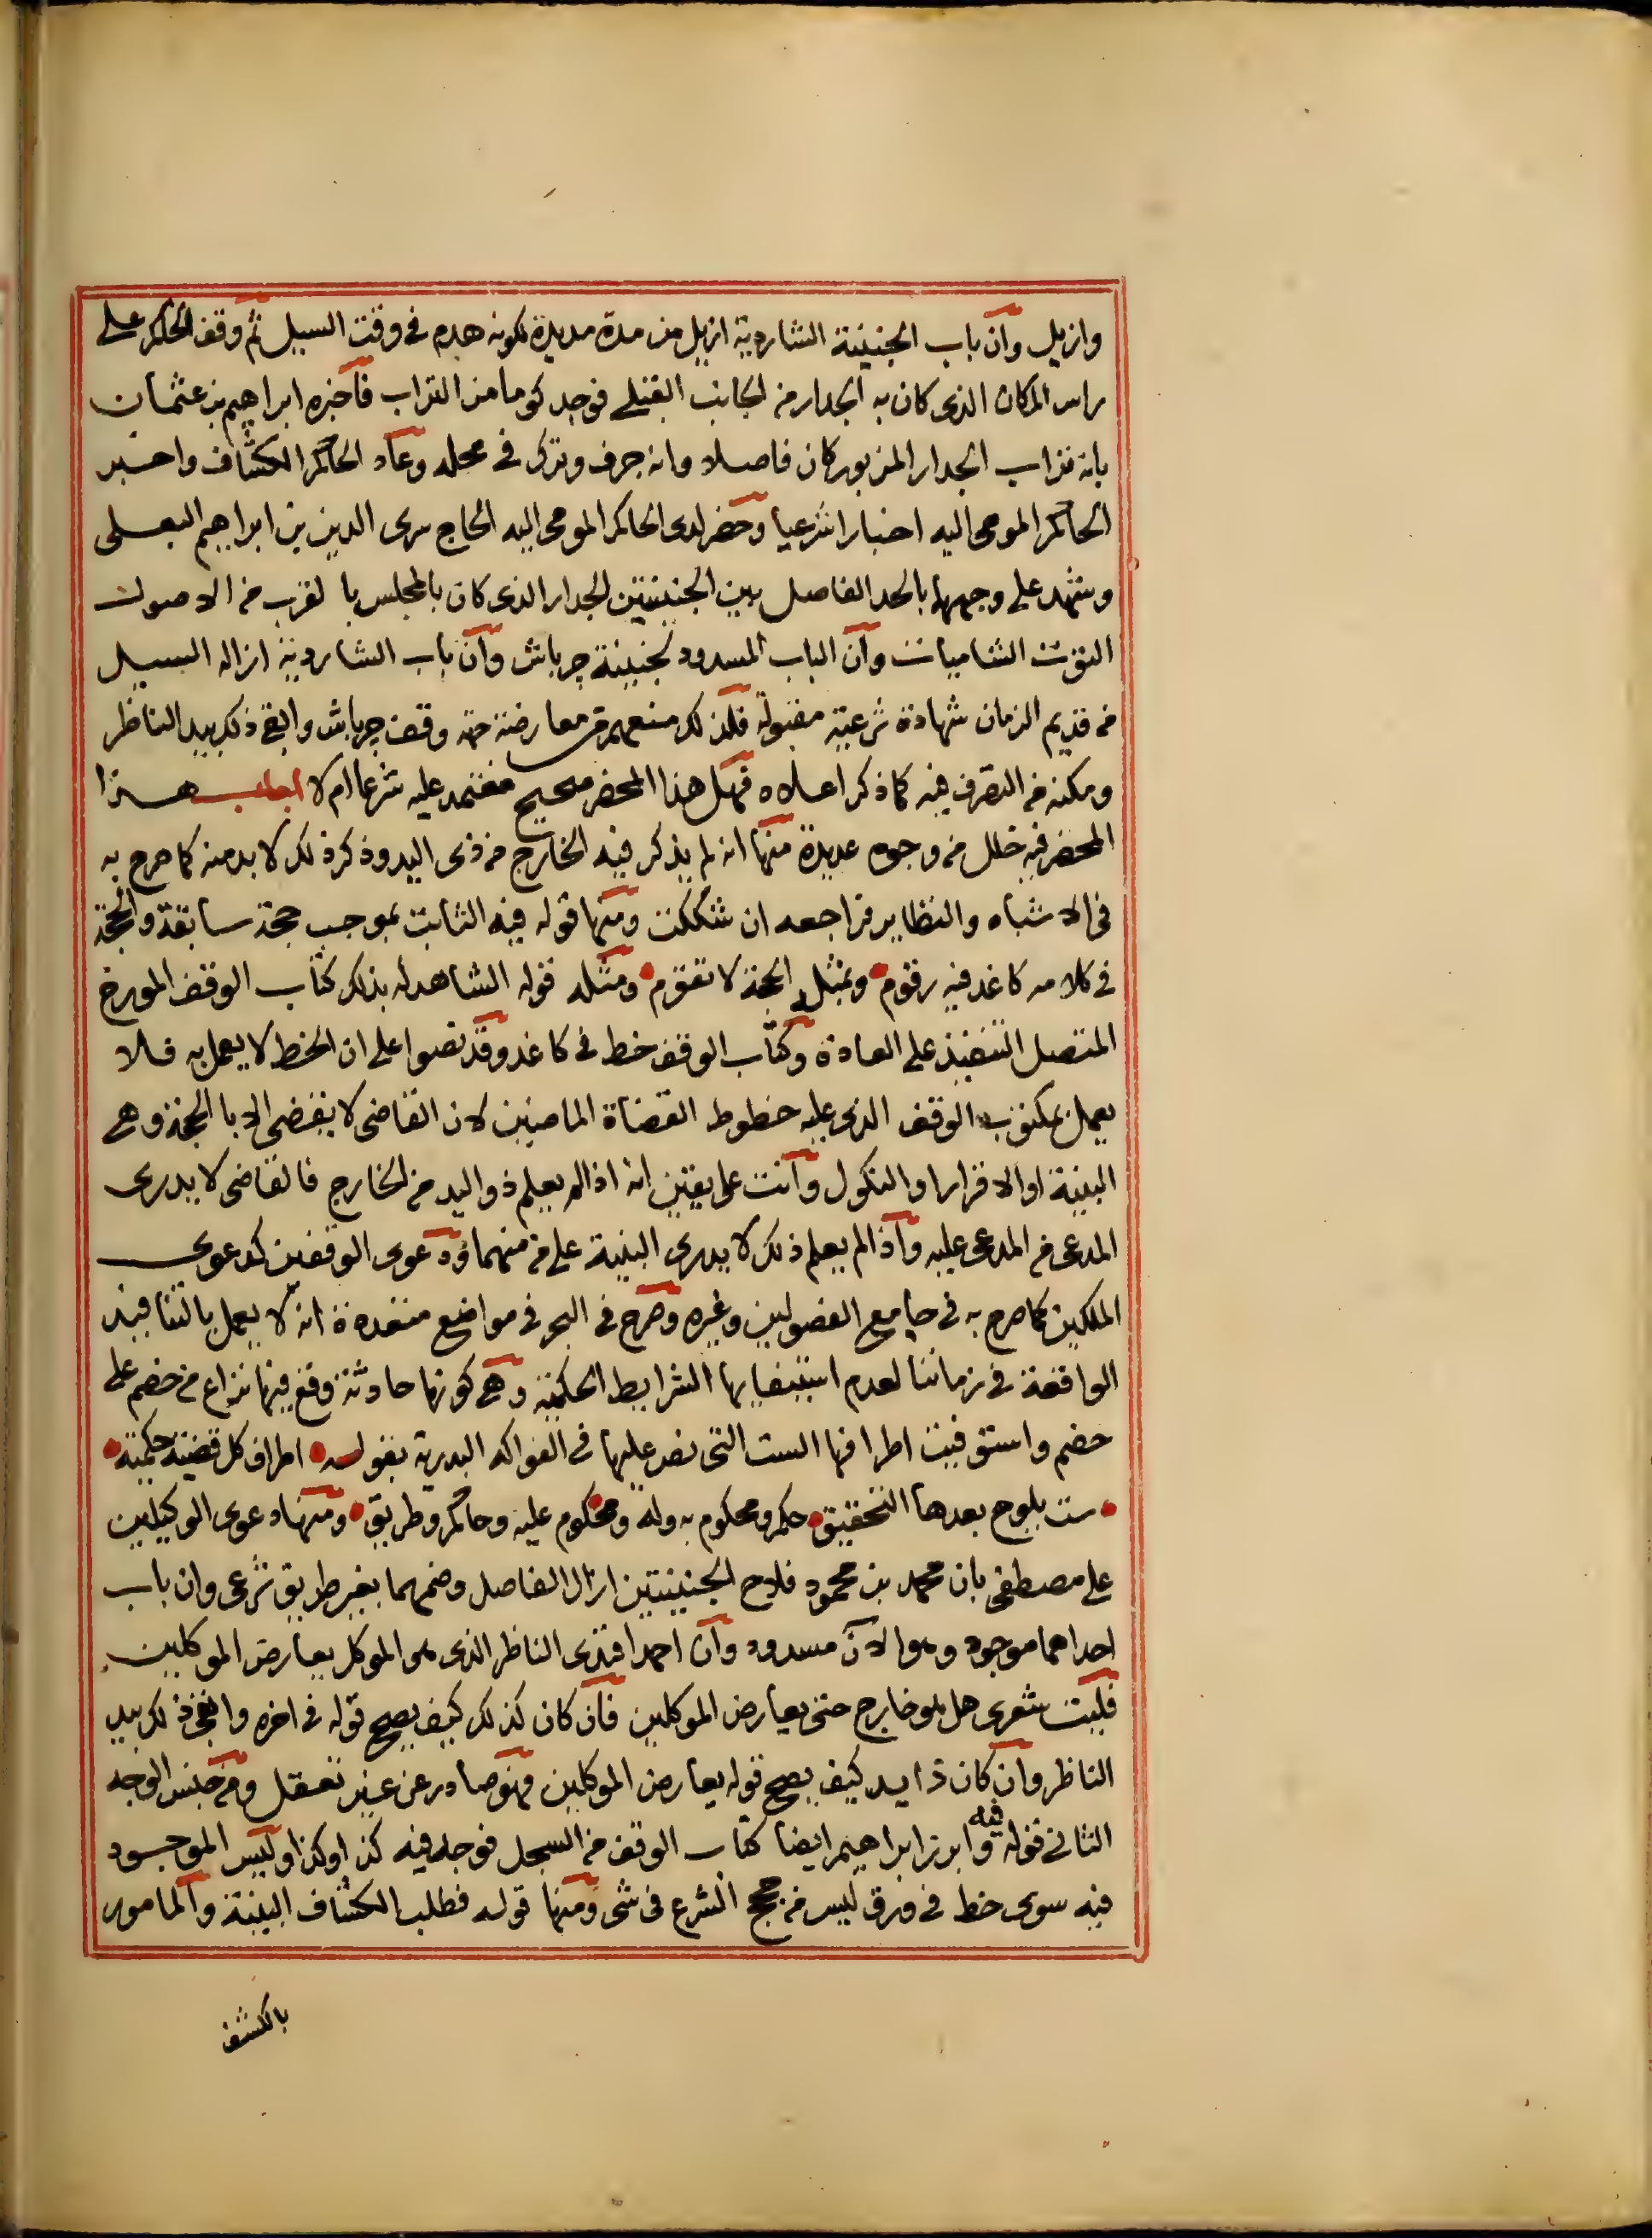 وازيل وان باب الجنينة الشاردية ازيل من مدة مديدة لكونه هدم في وقت السيل ثم وقف الحاكم على
راس المكان الذي كان به الجدار من الجانب القبلي فوجد كوما من التراب فاخبره ابراهيم بن عثمان
بانه تراب الجدار المزبور كان فاصلا وانه جرف وترك في محله وعاد الحاكم الكشاف واخبر
الحاكم المومى اليه اخبارا شرعيا وحضر لدى الحاكم المومى اليه الحاج سرى الدين بن ابراهيم البعلى
وشهد على وجههما بالحد الفاصل بين الجنينتين الجدار الذي كان بالمجلس بالقرب من الاصول
التوت الشاميات وان الباب المسدود لجنينة چرباش وان باب الشاردية ازاله السيل
من قديم الزمان شهادة شرعية مقبولة فلذلك منعهم من معارضة جهة وقف چرباش وابقى ذلك بيد الناظر
ومكنه من التصرف فيه كما ذكر اعلاه فهل هذا المحضر صحيح معتمد عليه شرعا ام لا اجاب هذا
المحضر فيه خلل من وجوه عديدة منها انه لم يذكر فيه الخارج من ذي اليد وذكر ذلك لا بد منه كما صرح به
في الاشباه والنظاير فراجعه ان شككت ومنها قوله فيه الثابت بموجب حجة سابقة والحجة
في كلامه كاغد فيه رقوم وبمثله الحجة لا تقوم ومثله قوله الشاهد له بذلك كتاب الوقف المورخ
المتصل التنفيذ على العادة وكتاب الوقف خط في كاغد وقد نصوا على ان الخط لا يعمل به فلا
يعمل بمكتوب الوقف الذي عليه خطوط القضاة الماضيين لان القاضي لا يقضي الا بالحجة وهي
البينة او الاقرار او النكول وانت على يقين انه اذا لم يعلم ذو اليد من الخارج فالقاضي لا يدرى
المدعى من المدعى عليه واذا لم يعلم ذلك لا يدرى البينة على من منهما ودعوى الوقفين كدعوى
الملكين كما صرح به في جامع الفصولين وغيره وصرح في البحر في مواضع متعددة انه لا يعمل بالتنافيذ
الواقعة في زماننا لعدم استيفايها الشرايط الحكمية وهي كونها حادثة وقع فيها نزاع من خصم على
خصم واستوفيت اطرافها الست التي نص عليها في الفواكه البدرية بقوله اطراف كل قضية حكمية
ست يلوح بعدها التحقيق حكم ومحكوم به وله ومحكوم عليه وحاكم وطريق ومنها دعوى الوكيلين
على مصطفى بان محمد بن محمود فلاح الجنينتين ازال الفاصل وضمهما بغير طريق شرعى وان باب
احداهما موجود وهو الآن مسدود وان احمد افندى الناظر الذي هو الموكل يعارض الموكلين
فليت شعرى هل هو خارج حتى يعارض الموكلين فان كان كذلك كيف يصح قوله في اخره وابقى ذلك بيد
الناظر وان كان ذا يد كيف يصح قوله يعارض الموكلين فهو صادر عن غير تعقل ومن جنس الوجه
الثاني قوله فيه وابرز ابراهيم ايضا كتاب الوقف من السجل فوجد فيه كذا وكذا وليس الموجود
فيه سوى خط في ورق ليس من حجج الشرع في شى ومنها قوله فطلب الكشاف البينة والمامور
بالكشف